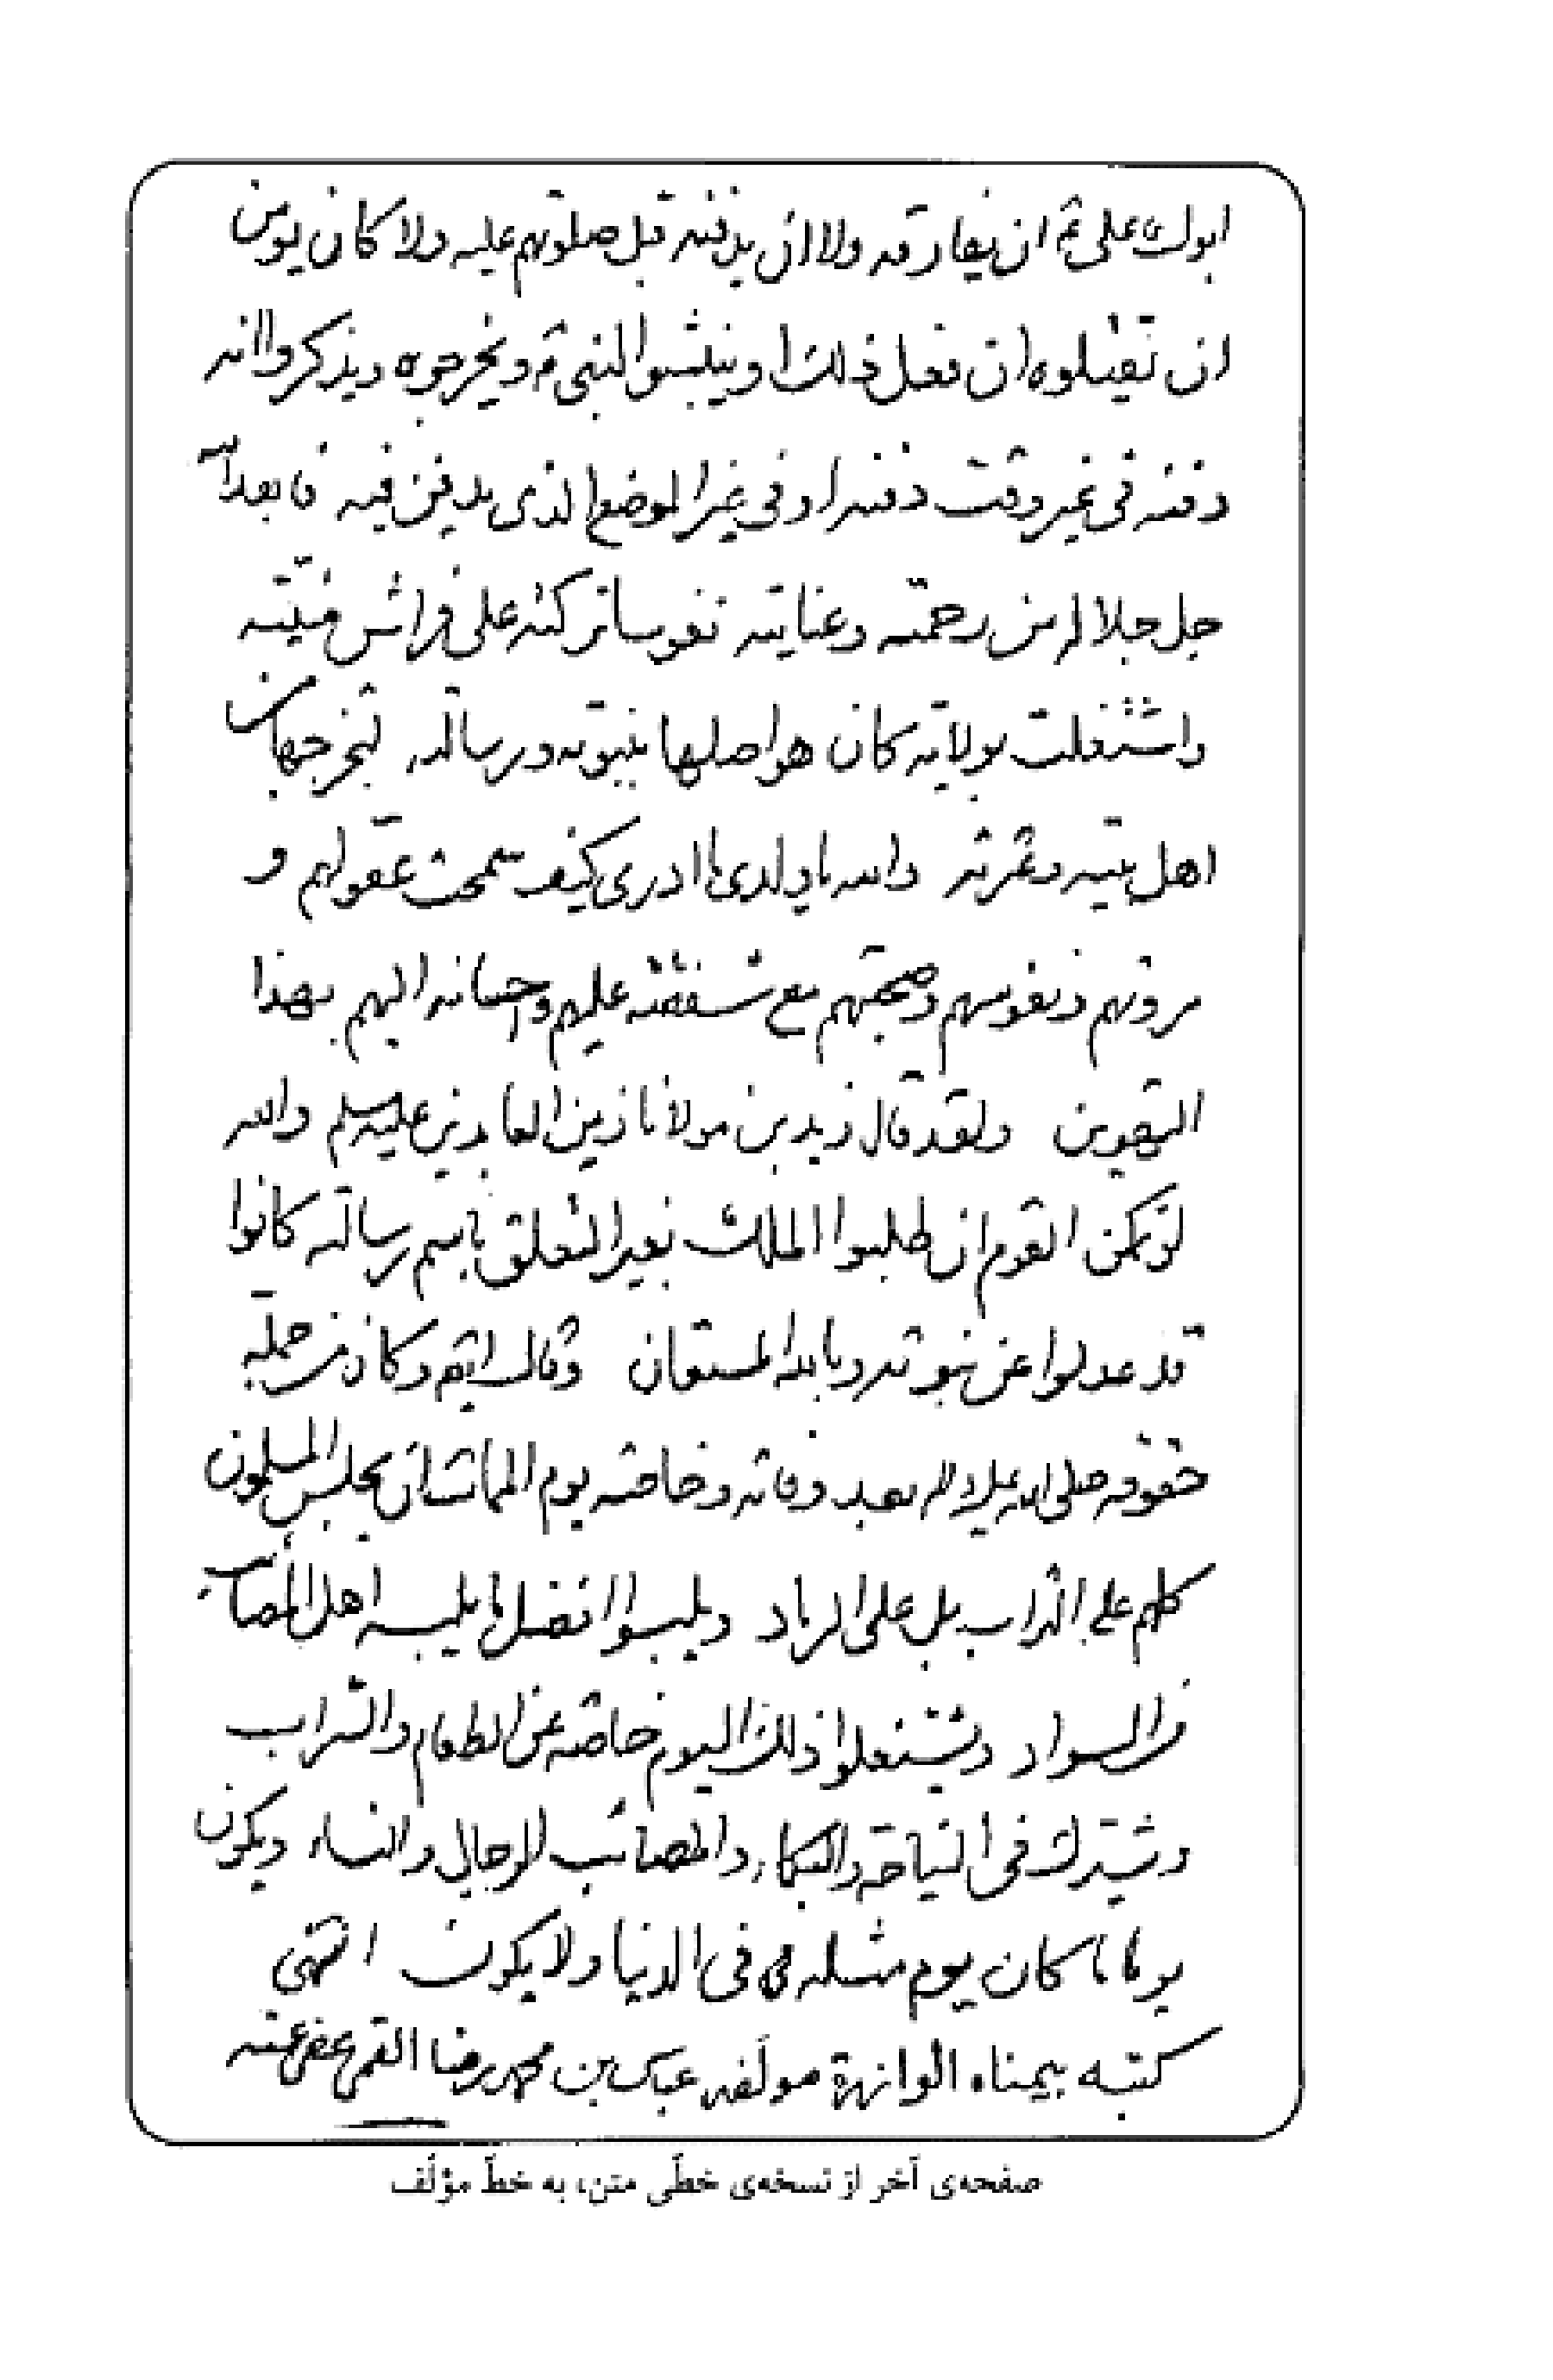 ابوك علی ع ان يفارقه ولا ان يدفنه قبل صلوتهم عليه ولا كان يؤمن
ان تقتلوه ان فعل ذلك او ينبشوا النبي ص ويخرجوه ويذكروا انه
دفنه في غير وقت دفنه او في غير الموضع الذي يدفن فيه فابعد الله
جل جلاله من رحمته وعنايته نفوسا تركته على فراش منيته
واشتغلت بولاية كان هو اصلها بنبوته ورسالته لتخرجها من
اهل بيته وعترته والله يا ولدي ما ادري كيف سمحت عقولهم و
مروتهم ونفوسهم وصحبتهم مع شفقته عليهم واحسانه اليهم بهذا
التهوين ولقد قال زيد بن مولانا زين العابدين عليه سلم والله
لو تمكن القوم ان طلبوا الملك بغير التعلق باسم رسالته كانوا
قد عدلوا عن نبوته وبالله المستعان وقال ايضا وكان من جملة
حقوقه صلى الله عليه واله بعد وفاته وخاصة يوم الممات ان يجلس المسلمون
كلهم على التراب بل على الرماد ويلبسوا افضل ما يلبسه اهل المصائب
من السواد ويشتغلوا ذلك اليوم خاصة عن الطعام والشراب
ويشترك في النياحة والبكاء والمصائب الرجال والنساء ويكون
يوما ما كان يوم مثله في الدنيا ولا يكون انتهى
كتبه بيمناه الوازرة مولفه عباس بن محمد رضا القمي عفي عنه
صفحه‌ی آخر از نسخه‌ی خطّی متن، به خطّ مؤلّف